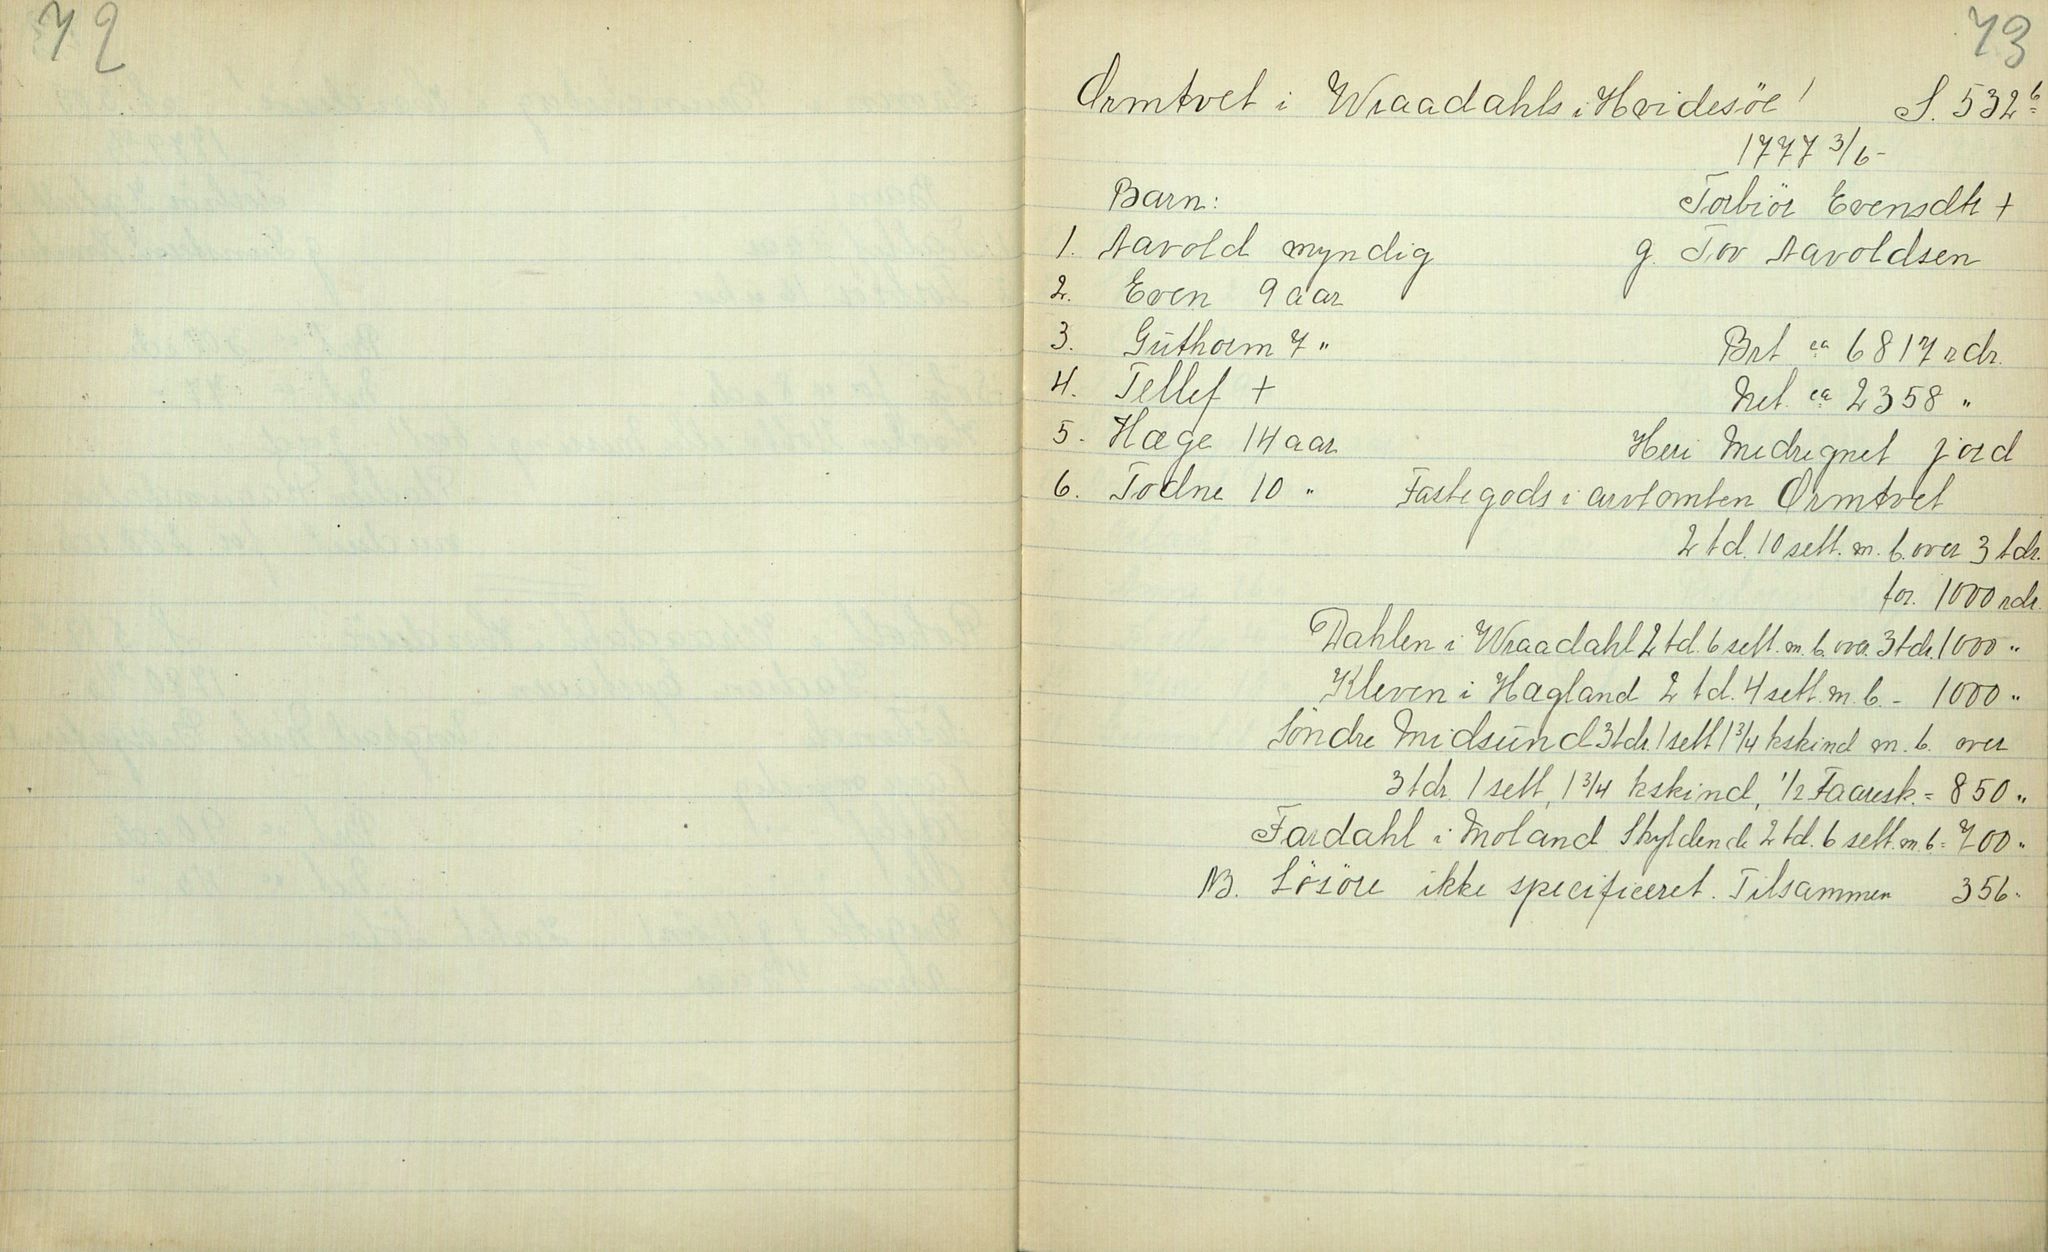 72
73
Ormtvet i Wraadahls i Hvidesöe S. 532 b
1777 3/6 -
Barn: Torbiör Evensdtr +
1. Aavold myndig g. Tov Aavoldsen
2. Even 9 aar
3. Guthorm 7 " Brt ca 6817 rdr.
4. Tellef + Net. ca 2358 "
5. Hæge 14 aar Heri Medregnet jord
6. Todne 10 " Fastegods i arvtomten Ormtvet
2 td. 10 sett. m. b. over 3 tdr.
for. 1000 rdr.
Dahlen i Wraadahl 2 td. 6 sett. m. b. over. 3 tdr. 1000 "
Kleven i Hægland 2 td. 4 sett. m. b. - 1000 "
Söndre Midsund 3 tdr. 1 sett 1 3/4 kskind m. b. over
3 tdr. 1 sett, 1 3/4 kskind, 1/2 Faaresk. = 850 "
Fardahl i Moland Skyldende 2 td. 6 sett. m. b = 700 "
NB. Lösöre ikke specificeret. Tilsammen 356 -